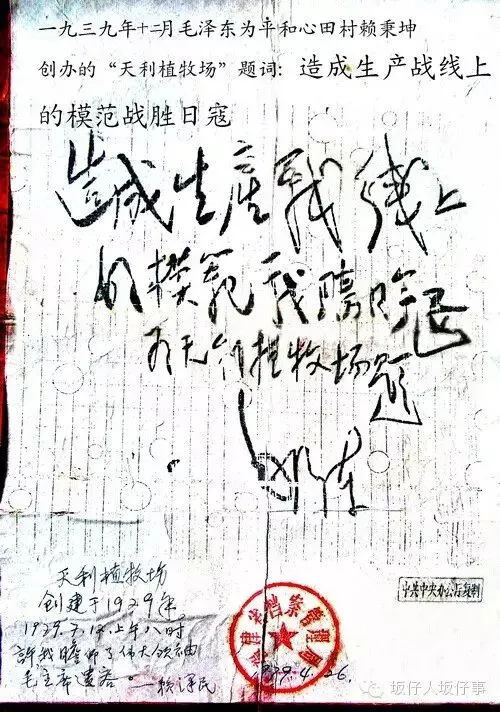 一九三九年十二月毛泽东为平和心田村赖秉坤
创办的“天利植牧场”题词：造成生产战线上
的模范战胜日寇
造成生產战线上
的模范战勝日寇
为天利植牧场題
天利植牧场
创建于1929年
上午八时
許我瞻仰了伟大领袖
毛主席遗容。
——赖泽民
档案管理局
4.26.
中共中央办公厅复制
坂仔人坂仔事